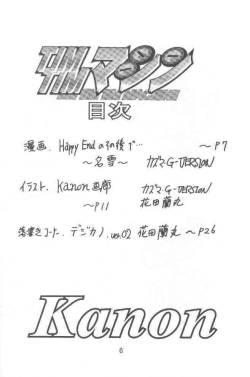 TIMTIMマシン
目次
漫画. Happy End のその後で… ～P7
～名雪～ カズマ・G-VERSION
イラスト. Kanon画廊 カズマ・G-VERSION
～P11 花田蘭丸
落書きコーナー. デジカノ. ver.02 花田蘭丸 ～P26
Kanon
6